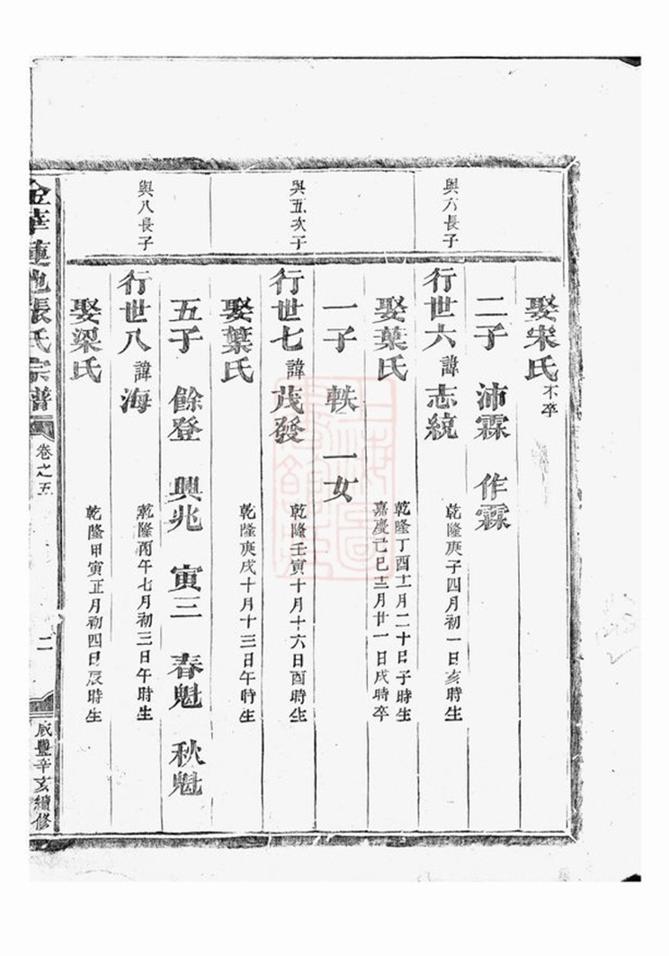 娶宋氏 不卒
與六長子
二子 沛霖 作霖
行世六 諱志統 乾隆庚子四月初一日亥時生
娶葉氏 乾隆丁酉十一月二十日子時生
嘉慶己巳三月廿一日戌時卒
與五次子
一子 軼 一女
行世七 諱茂發 乾隆壬寅十月十六日酉時生
娶葉氏 乾隆庚戌十月十三日午時生
與八長子
五子 餘登 興兆 寅三 春魁 秋魁
行世八 諱海 乾隆丙午七月初三日午時生
娶梁氏 乾隆甲寅正月初四日辰時生
金華蓮池張氏宗譜 卷之五 二 咸豐辛亥續修